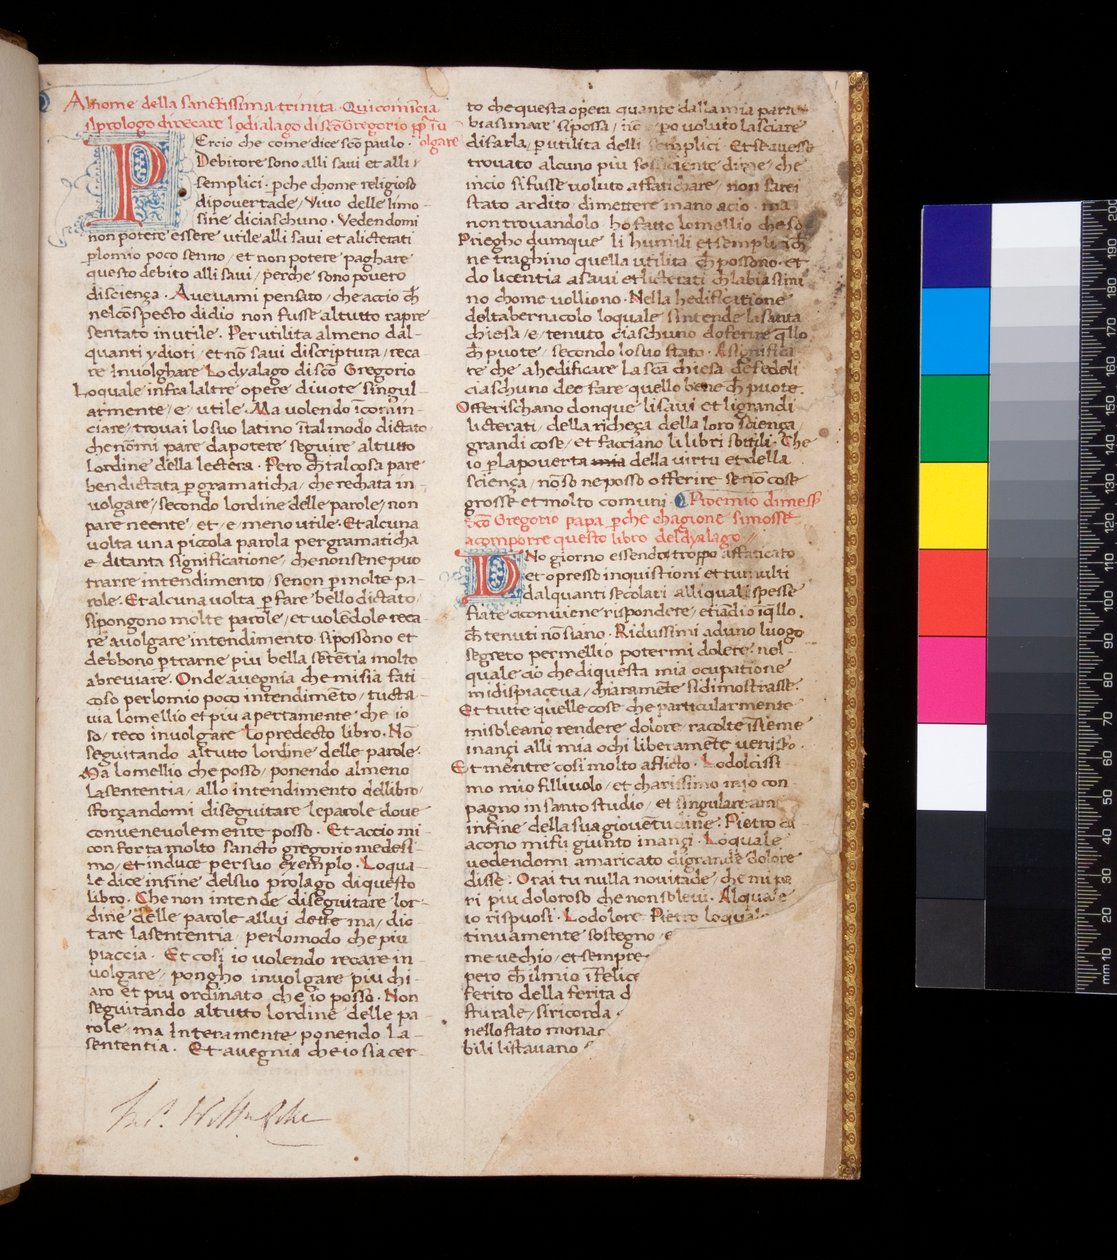 Alnome della sanctissima trinita · Qui comincia
ilprologo direcare lo dialago di sco Gregorio pp in u
olgare
PErcio che come dice sco paulo ·
Debitore sono alli saui et alli
semplici · pche chome religioso
dipouertade / Viuo delle limo-
sine diciaschuno · Vedendomi
non potere essere utile alli saui et alicterati
plomio poco senno / et non potere paghare
questo debito alli saui / perche sono pouero
disciença · Aueuami pensato / che accio ch
nelcospecto didio non fusse altutto rapre
sentato inutile · Per utilita almeno dal-
quanti ydioti / et no saui discriptura / reca
re Involghare Lo dyalago disco Gregorio
Loquale infra laltre opere diuote singul
armente / e / utile · Ma uolendo icomin-
ciare / trouai lo suo latino ital modo dictato ·
che no mi pare da potere seguire altutto
lordine della lectera · Pero ch tal cosa pare
ben dictata p gramaticha / che rechata in-
volgare / secondo lordine delle parole / non
pare neente / et / e meno utile · Et alcuna
volta una piccola parola per gramaticha
e ditanta significatione / che non sene puo
trarre intendimento / se non p molte pa-
role · Et alcuna volta p fare bello dictato /
si pongono molte parole / et uoledole reca-
re auolgare intendimento si possono et
debbono ptrarne piu bella setetia molto
abreuiare · Onde auegnia che misia fati-
coso perlomio poco intendimeto / tucta-
uia lomellio et piu apertamente che io
so / reco inuolgare Lo predecto libro · No
seguitando altutto lordine delle parole ·
Ma lomellio che posso / ponendo almeno
Lasententia / allo intendimento dellibro /
sforçandomi diseguitare le parole doue
conueneuolemente posso · Et accio mi
conforta molto sancto gregorio medesi
mo / et induce per suo exemplo · Loqua
le dice infine delsuo prolago di questo
libro · Che non intende diseguitare lor-
dine delle parole allui dette ma / dic
tare lasententia / perlomodo che piu
piaccia · Et cosi io uolendo recare in
uolgare / pongho inuolgare piu chi-
aro et piu ordinato che io posso · Non
seguitando altutto lordine delle pa-
role / ma Interamente ponendo La
sententia · Et auegnia che io sia cer-
to che questa opera quante dalla mia parte
biasimare si possa / no po uoluto lasciare
difarla / p utilita delli semplici · Et se auesse
trouato alcuno piu sofficiente dime / che
incio si fusse uoluto affatichare / non sarei
stato ardito dimettere mano acio · ma
non trouandolo ho fatto lomellio che so
Priegho dumque li humili et semplici ch
ne traghino quella utilita ch possono · et
do licentia asaui et licterati ch labiasimi
no chome uolliono · Nella hedificatione
deltabernacolo loquale sintende la santa
chiesa / e / tenuto ciaschuno doferire qllo
ch puote / secondo lo suo stato · Asignifica
re che ahedificare La sca chiesa de fedeli
ciaschuno dee fare quello bene ch puote ·
Offerischano donque li saui et li grandi
licterati / della richeça della loro sciença /
grandi cose / et facciano li libri sottili · Che
io p la pouerta mia della uirtu et della
sciença / no so ne posso offerire se no cose
grosse et molto comuni · Proemio di mess
sco Gregorio papa pche chagione simosse
acomporre questo libro deldyalago
No giorno essendo troppo affaticato
et opresso inquistioni et tumulti
dalquanti secolari alli quali spesse
fiate aconuiene rispondere / etiadio iqllo
ch tenuti no siano · Ridussimi aduno luogo
segreto per mellio potermi dolere / nel-
quale cio che di questa mia ocupatione
midispiaceua / chiaramete si dimostrasse ·
Et tutte quelle cose che particularmente
misoleano rendere dolore racolte isieme
inançi alli mia ochi liberamete uenisso ·
Et mentre cosi molto aflicto · Lo dolcissi
mo mio fillivolo / et charissimo mio con
pagno in santo studio / et singulare am
infine della sua giouetudine · Pietro di
acono mi fu giunto inançi · Loquale
uedendomi amaricato digrande dolore
disse · Orai tu nulla nouitade / che mi pa
ri piu doloroso che non soleui · Alquale
io rispuosi · Lo dolore Pietro loquale
tinuamente sostegno / e
me uechio / et sempre
pero ch il mio ifelice
ferito della ferita d
sturale / si ricorda
nello stato monac
bili li stauano s